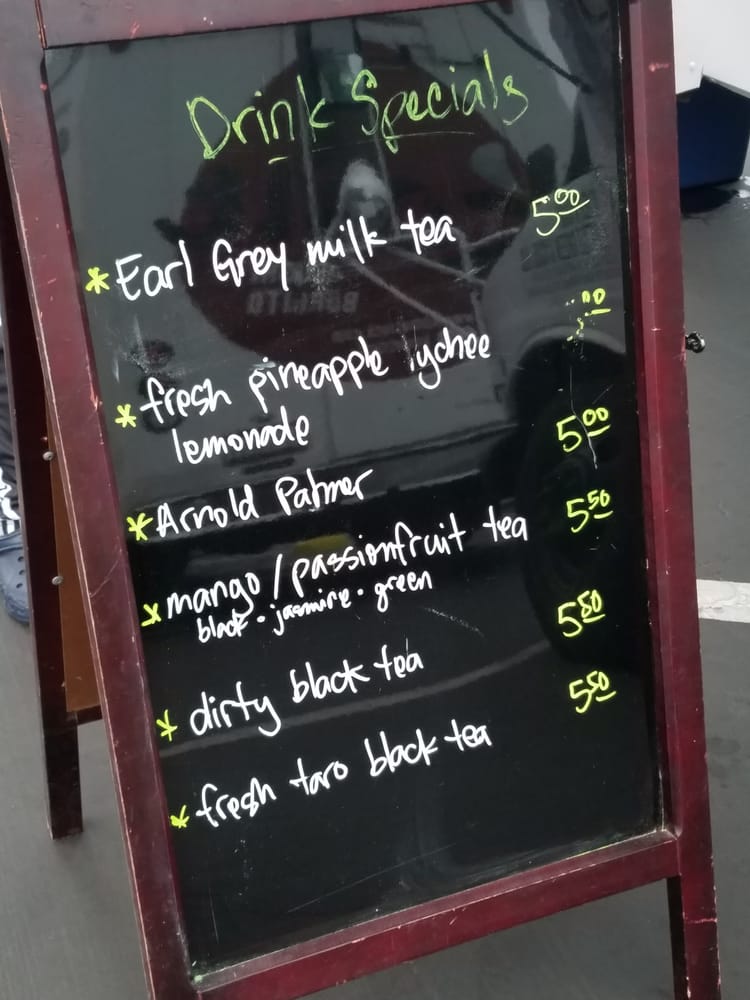 Drink Specials
* Earl Grey milk tea 5.00
* fresh pineapple lychee
lemonade
* Arnold Palmer 5.00
* mango/passionfruit tea 5.50
black · jasmine · green
* dirty black tea 5.50
* fresh taro black tea 5.50